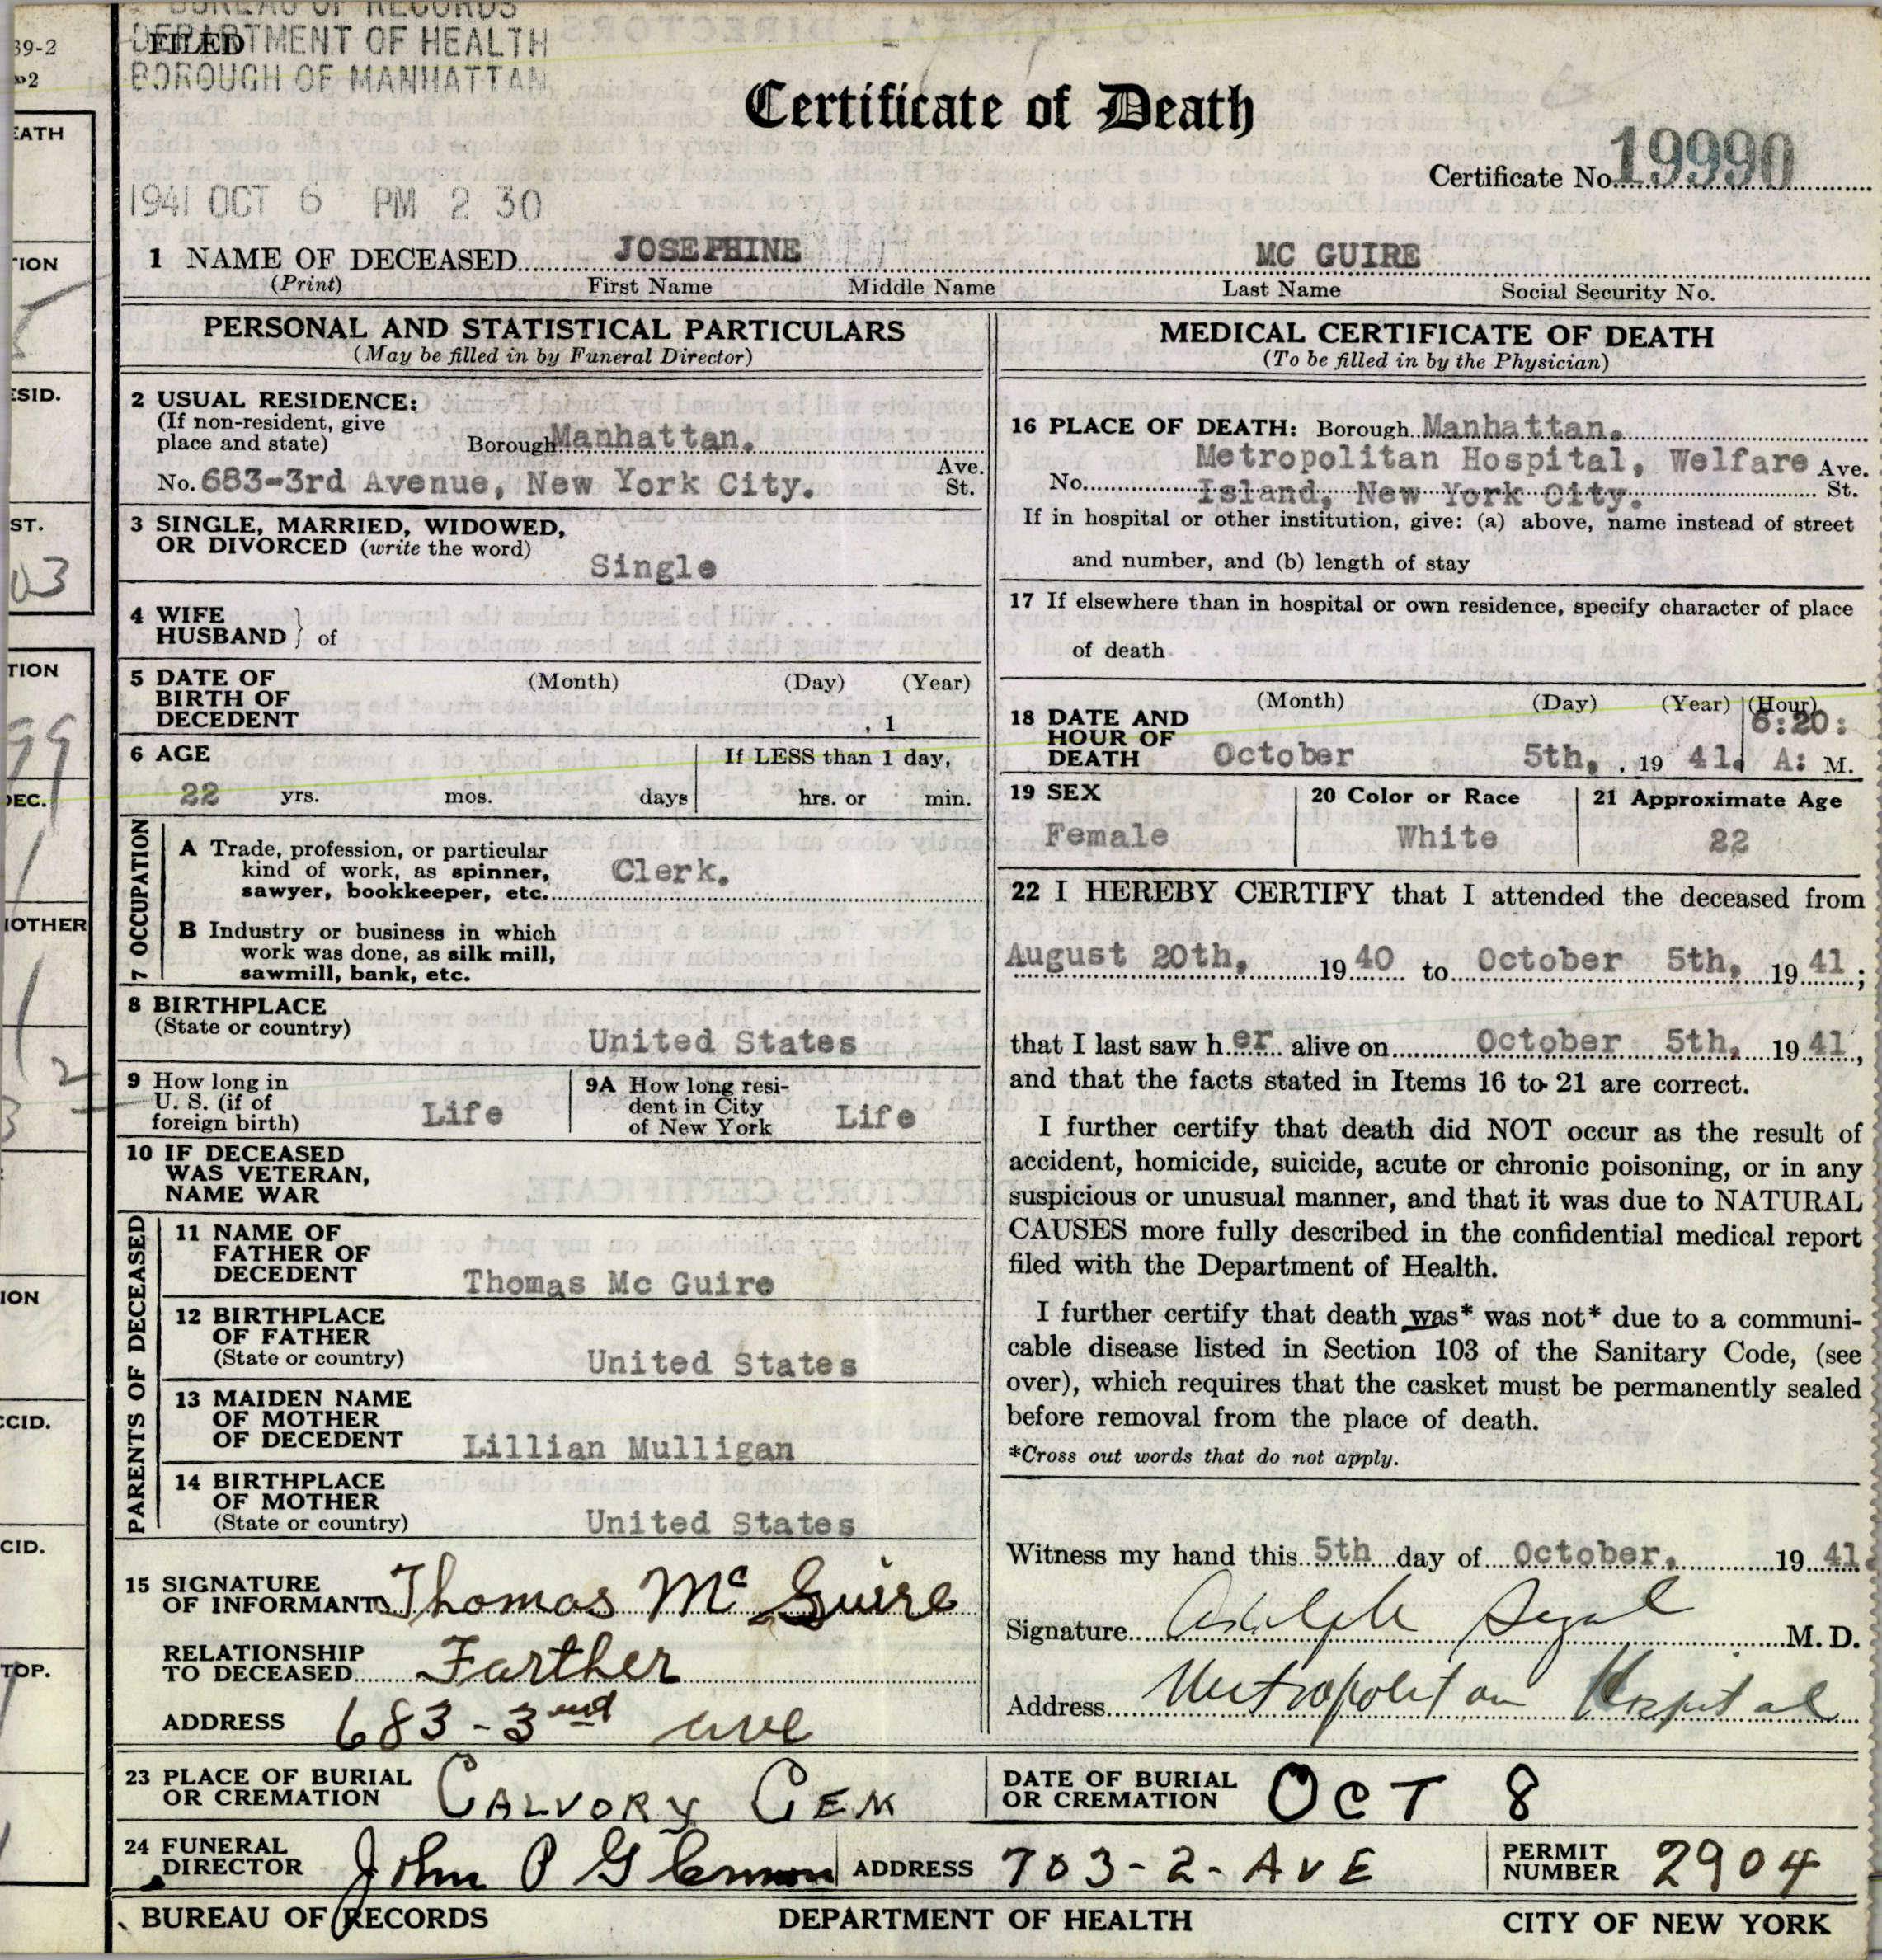 BUREAU OF RECORDS
DEPARTMENT OF HEALTH
FILED
BOROUGH OF MANHATTAN
39-2
Certificate of Death
Certificate No. 19990
1941 OCT 6 PM 2 30
1 NAME OF DECEASED JOSEPHINE MC GUIRE
(Print) First Name Middle Name Last Name Social Security No.
PERSONAL AND STATISTICAL PARTICULARS
(May be filled in by Funeral Director)
2 USUAL RESIDENCE:
(If non-resident, give
place and state) Borough Manhattan.
No. 683-3rd Avenue, New York City. Ave.
St.
3 SINGLE, MARRIED, WIDOWED,
OR DIVORCED (write the word)
Single
4 WIFE
HUSBAND } of
5 DATE OF (Month) (Day) (Year)
BIRTH OF
DECEDENT , 1
6 AGE If LESS than 1 day,
22 yrs. mos. days hrs. or min.
7 OCCUPATION
A Trade, profession, or particular
kind of work, as spinner, Clerk.
sawyer, bookkeeper, etc.
B Industry or business in which
work was done, as silk mill,
sawmill, bank, etc.
8 BIRTHPLACE
(State or country)
United States
9 How long in
U. S. (if of
foreign birth) Life
9A How long resi-
dent in City
of New York Life
10 IF DECEASED
WAS VETERAN,
NAME WAR
PARENTS OF DECEASED
11 NAME OF
FATHER OF
DECEDENT Thomas Mc Guire
12 BIRTHPLACE
OF FATHER
(State or country) United States
13 MAIDEN NAME
OF MOTHER
OF DECEDENT Lillian Mulligan
14 BIRTHPLACE
OF MOTHER
(State or country) United States
15 SIGNATURE
OF INFORMANT Thomas Mc Guire
RELATIONSHIP
TO DECEASED Farther
ADDRESS 683-3nd ave
MEDICAL CERTIFICATE OF DEATH
(To be filled in by the Physician)
16 PLACE OF DEATH: Borough Manhattan.
Metropolitan Hospital, Welfare Ave.
No. Island, New York City. St.
If in hospital or other institution, give: (a) above, name instead of street
and number, and (b) length of stay
17 If elsewhere than in hospital or own residence, specify character of place
of death
(Month) (Day) (Year) (Hour)
18 DATE AND 6:20:
HOUR OF
DEATH October 5th, , 19 41. A: M.
19 SEX 20 Color or Race 21 Approximate Age
Female White 22
22 I HEREBY CERTIFY that I attended the deceased from
August 20th, 19 40 to October 5th, 19 41;
that I last saw her alive on October 5th, 19 41,
and that the facts stated in Items 16 to 21 are correct.
I further certify that death did NOT occur as the result of
accident, homicide, suicide, acute or chronic poisoning, or in any
suspicious or unusual manner, and that it was due to NATURAL
CAUSES more fully described in the confidential medical report
filed with the Department of Health.
I further certify that death was* was not* due to a communi-
cable disease listed in Section 103 of the Sanitary Code, (see
over), which requires that the casket must be permanently sealed
before removal from the place of death.
*Cross out words that do not apply.
Witness my hand this 5th day of October, 19 41.
Signature Segal M. D.
Address Metropolitan Hospital
23 PLACE OF BURIAL
OR CREMATION CALVORY CEM
DATE OF BURIAL
OR CREMATION OCT 8
24 FUNERAL
DIRECTOR John P Glennon
ADDRESS 703-2-AVE
PERMIT
NUMBER 2904
BUREAU OF RECORDS DEPARTMENT OF HEALTH CITY OF NEW YORK